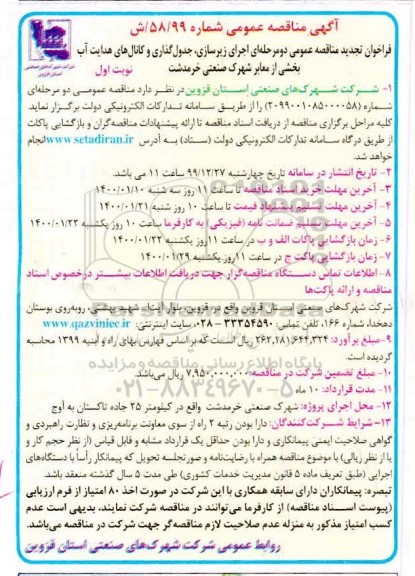 آگهی مناقصه عمومی شماره ۵۸/۹۹/ش
فراخوان تجدید مناقصه عمومی دومرحله‌ای اجرای زیرسازی، جدول‌گذاری و کانال‌های هدایت آب
بخشی از معابر شهرک صنعتی خرمدشت
نوبت اول
شرکت شهرک‌های صنعتی
استان قزوین
۱- شرکت شهرک‌های صنعتی استان قزوین در نظر دارد مناقصه عمومی دو مرحله‌ای
شماره (۲۰۹۹۰۰۱۰۸۵۰۰۰۰۵۸) را از طریق سامانه تدارکات الکترونیکی دولت برگزار نماید.
کلیه مراحل برگزاری مناقصه از دریافت اسناد مناقصه تا ارائه پیشنهادات مناقصه‌گران و بازگشایی پاکات
از طریق درگاه سامانه تدارکات الکترونیکی دولت (ستاد) به آدرس www.setadiran.ir انجام
خواهد شد.
۲- تاریخ انتشار در سامانه تاریخ چهارشنبه ۹۹/۱۲/۲۷ ساعت ۱۱ می باشد.
۳- آخرین مهلت خرید اسناد مناقصه تا ساعت ۱۱ روز سه شنبه ۱۴۰۰/۰۱/۱۰
۴- آخرین مهلت تسلیم پیشنهاد قیمت تا ساعت ۱۰ روز شنبه ۱۴۰۰/۰۱/۲۱
۵- آخرین مهلت تسلیم ضمانت نامه (فیزیکی) به کارفرما ساعت ۱۰ روز یکشنبه ۱۴۰۰/۰۱/۲۲
۶- زمان بازگشایی پاکات الف و ب در ساعت ۱۱ روز یکشنبه ۱۴۰۰/۰۱/۲۲
۷- زمان بازگشایی پاکت ج در ساعت ۱۱ روز یکشنبه ۱۴۰۰/۰۱/۲۹
۸- اطلاعات تماس دستگاه مناقصه‌گزار جهت دریافت اطلاعات بیشتر درخصوص اسناد
مناقصه و ارائه پاکت‌ها
شرکت شهرک‌های صنعتی استان قزوین واقع در: قزوین، بلوار شهید بهشتی، روبه‌روی بوستان
دهخدا، شماره ۱۶۶، تلفن تماس: ۳۳۳۵۴۵۹۰-۰۲۸ سایت اینترنتی: www.qazviniec.ir
۹- مبلغ برآورد: ۲۶۲,۲۸۱,۶۴۴,۳۲۴ ریال است که بر اساس فهارس بهای راه و ابنیه ۱۳۹۹ محاسبه
گردیده است.
۱۰- مبلغ تضمین شرکت در مناقصه: ۷,۹۵۰,۰۰۰,۰۰۰ ریال می‌باشد.
۱۱- مدت قرارداد: ۱۰ ماه
۱۲- محل اجرای پروژه: شهرک صنعتی خرمدشت واقع در کیلومتر ۲۵ جاده تاکستان به آوج
۱۳- شرایط شرکت‌کنندگان: دارا بودن رتبه ۲ راه از سوی معاونت برنامه‌ریزی و نظارت راهبردی و
گواهی صلاحیت ایمنی پیمانکاری و دارا بودن حداقل یک قرارداد مشابه و قابل قیاس (از نظر حجم کار و
یا از نظر ریالی) با موضوع مناقصه همراه با رضایت‌نامه و صورتجلسه تحویل که پیمانکار رأساً با دستگاه‌های
اجرایی (طبق تعریف ماده ۵ قانون مدیریت خدمات کشوری) طی مدت ۵ سال گذشته منعقد باشد.
تبصره: پیمانکاران دارای سابقه همکاری با این شرکت در صورت اخذ ۸۰ امتیاز از فرم ارزیابی
(پیوست اسناد مناقصه) از کارفرما می‌توانند در مناقصه شرکت نمایند، بدیهی است عدم
کسب امتیاز مذکور به منزله عدم صلاحیت لازم مناقصه‌گر جهت شرکت در مناقصه می‌باشد.
روابط عمومی شرکت شهرک‌های صنعتی استان قزوین
پایگاه اطلاع رسانی مناقصه و مزایده
۰۲۱-۸۸۳۴۹۶۷۰-۵